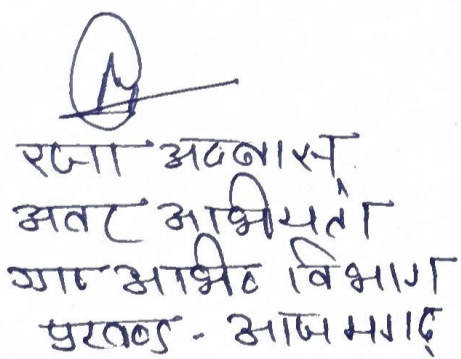 रजा अब्बास
अवर अभियंता
ग्रा० अभि० विभाग
प्रखण्ड - आजमगढ़